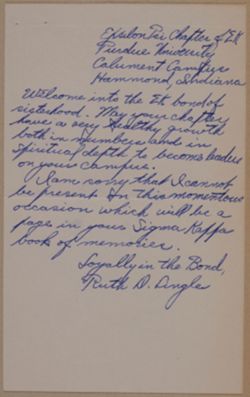 Epsilon Psi Chapter of ΣK
Purdue University
Calumet Campus
Hammond, Indiana
Welcome into the ΣK bond of
sisterhood. May your chapter
have a very healthy growth
both in numbers and in
spiritual depth to become leaders
on your campus.
I am sorry that I cannot
be present on this momentous
occasion which will be a
page in your Sigma Kappa
book of memories.
Loyally in the Bond,
Ruth D. Dingle